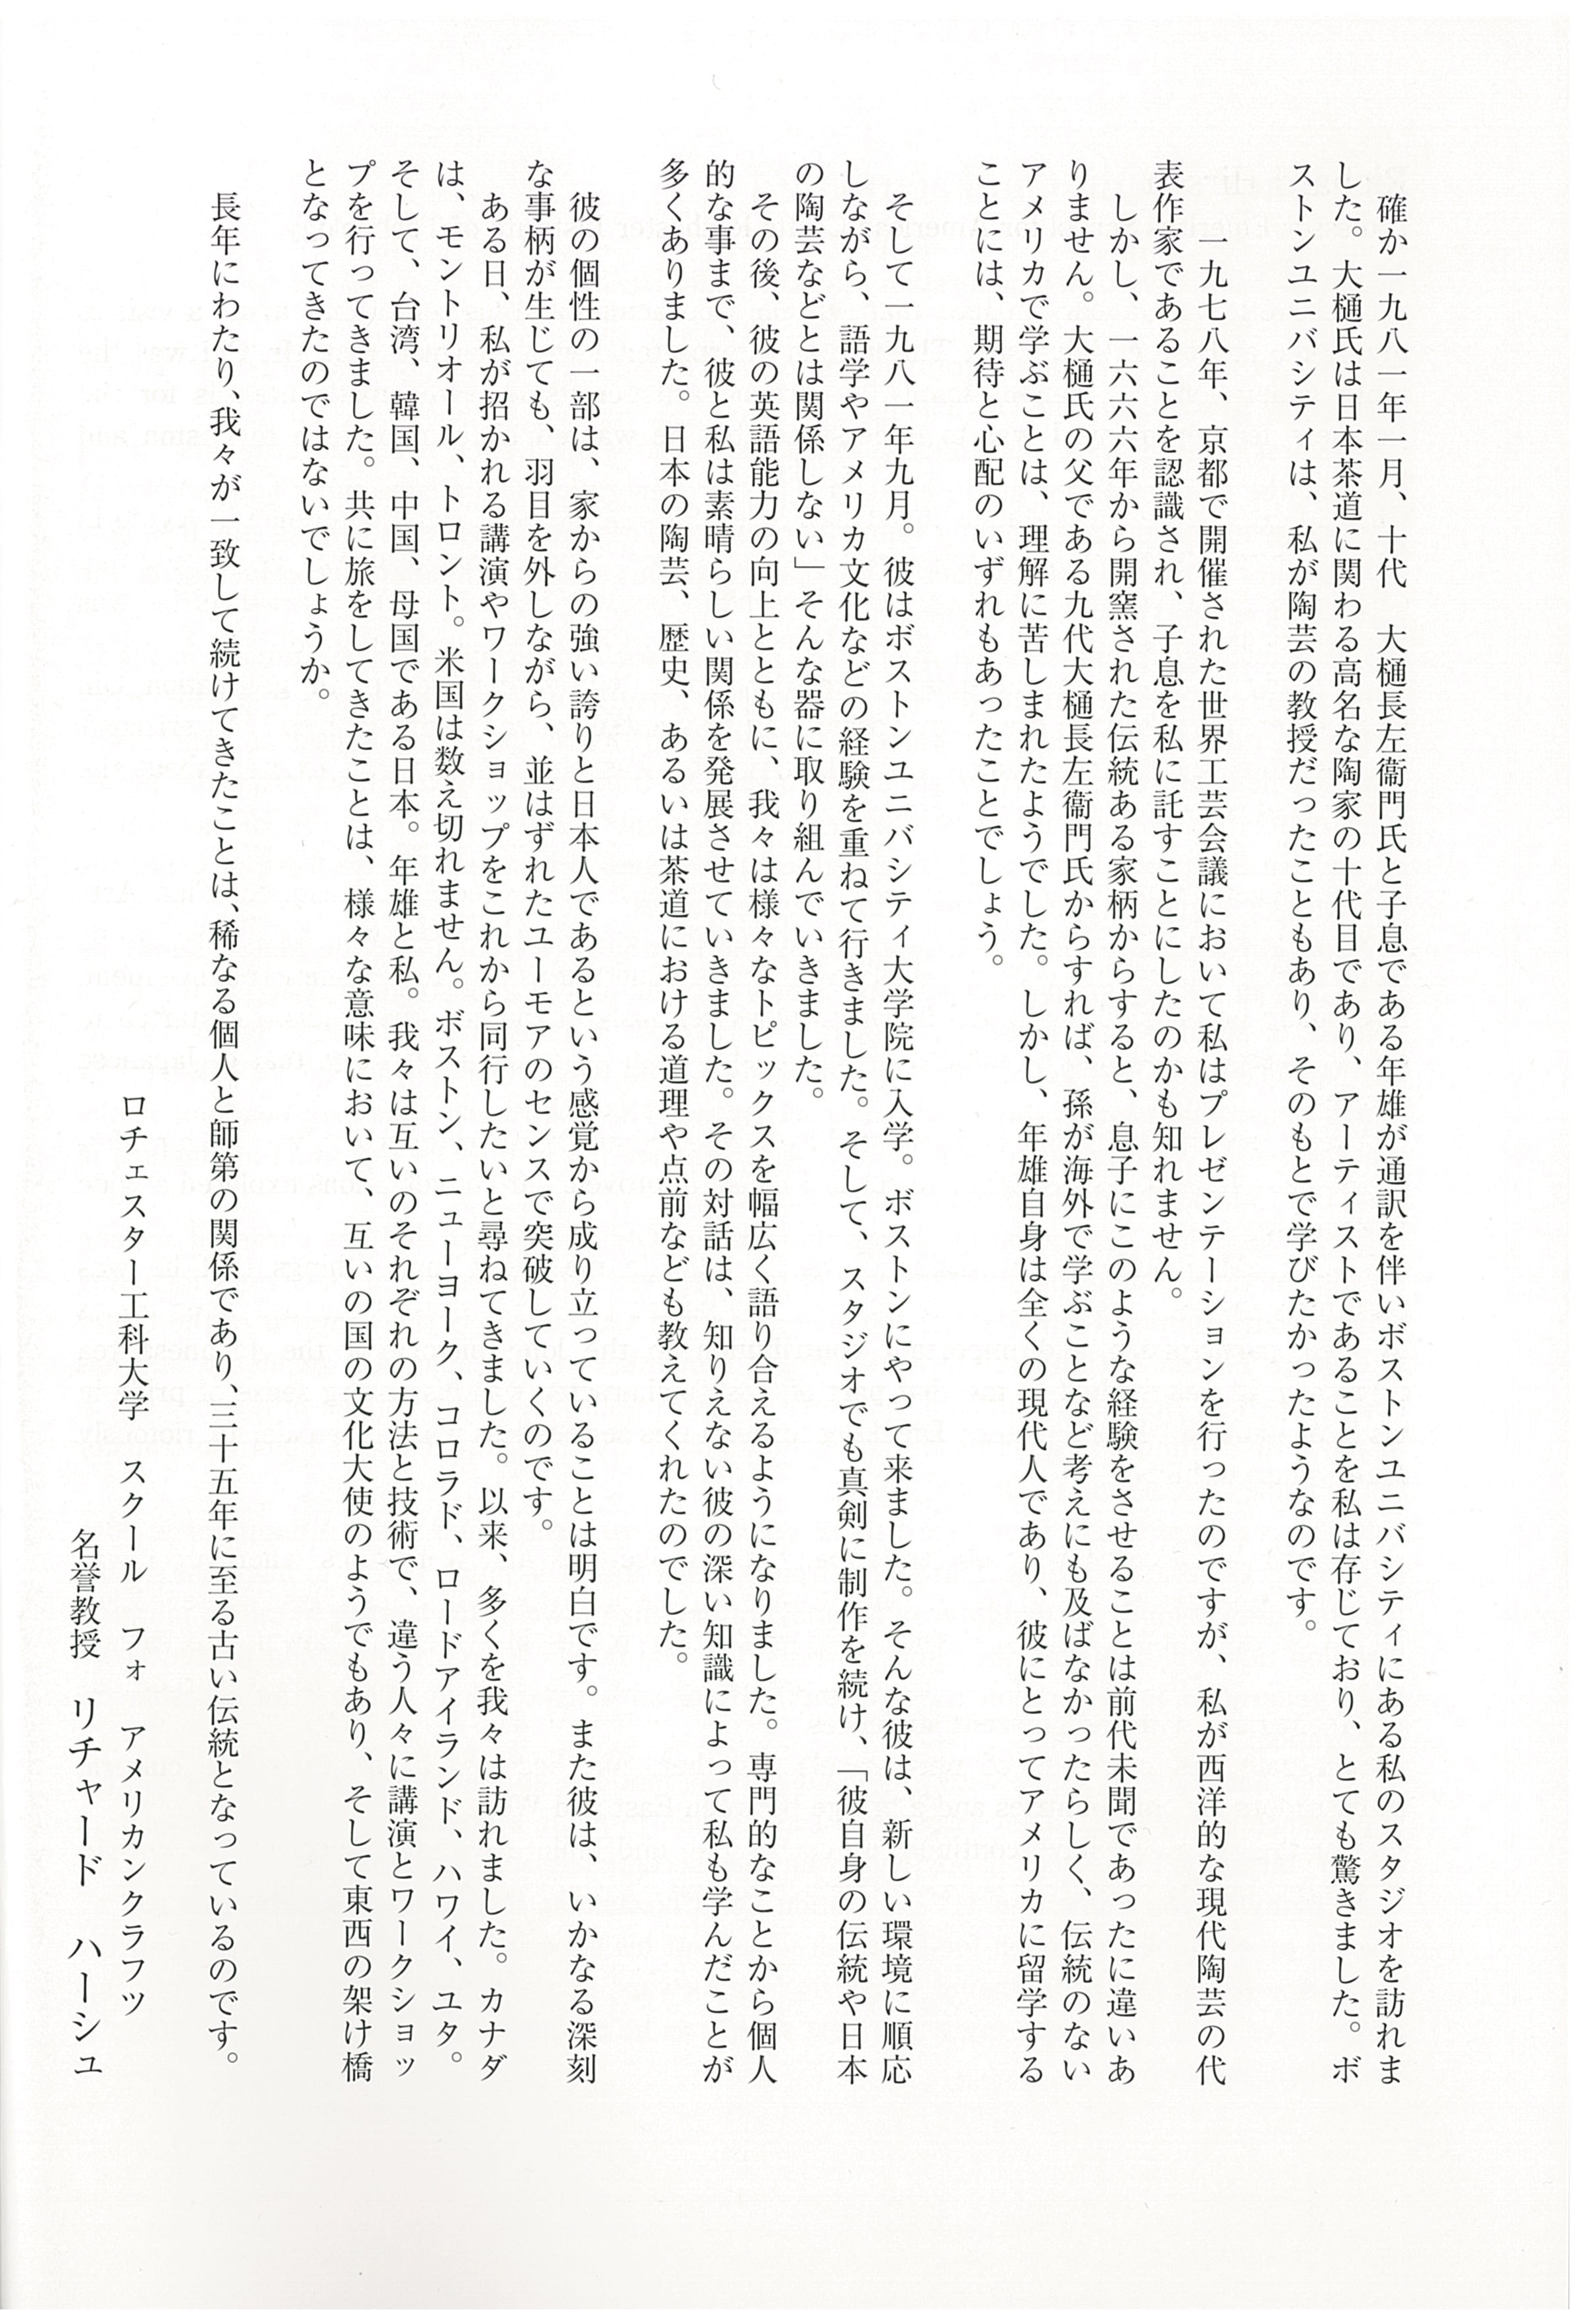 確か一九八一年一月、十代　大樋長左衞門氏と子息である年雄が通訳を伴いボストンユニバシティにある私のスタジオを訪れま
した。大樋氏は日本茶道に関わる高名な陶家の十代目であり、アーティストであることを私は存じており、とても驚きました。ボ
ストンユニバシティは、私が陶芸の教授だったこともあり、そのもとで学びたかったようなのです。
一九七八年、京都で開催された世界工芸会議において私はプレゼンテーションを行ったのですが、私が西洋的な現代陶芸の代
表作家であることを認識され、子息を私に託すことにしたのかも知れません。
しかし、一六六六年から開窯された伝統ある家柄からすると、息子にこのような経験をさせることは前代未聞であったに違いあ
りません。大樋氏の父である九代大樋長左衞門氏からすれば、孫が海外で学ぶことなど考えにも及ばなかったらしく、伝統のない
アメリカで学ぶことは、理解に苦しまれたようでした。しかし、年雄自身は全くの現代人であり、彼にとってアメリカに留学する
ことには、期待と心配のいずれもあったことでしょう。
そして一九八一年九月。彼はボストンユニバシティ大学院に入学。ボストンにやって来ました。そんな彼は、新しい環境に順応
しながら、語学やアメリカ文化などの経験を重ねて行きました。そして、スタジオでも真剣に制作を続け、「彼自身の伝統や日本
の陶芸などとは関係しない」そんな器に取り組んでいきました。
その後、彼の英語能力の向上とともに、我々は様々なトピックスを幅広く語り合えるようになりました。専門的なことから個人
的な事まで、彼と私は素晴らしい関係を発展させていきました。その対話は、知りえない彼の深い知識によって私も学んだことが
多くありました。日本の陶芸、歴史、あるいは茶道における道理や点前なども教えてくれたのでした。
彼の個性の一部は、家からの強い誇りと日本人であるという感覚から成り立っていることは明白です。また彼は、いかなる深刻
な事柄が生じても、羽目を外しながら、並はずれたユーモアのセンスで突破していくのです。
ある日、私が招かれる講演やワークショップをこれから同行したいと尋ねてきました。以来、多くを我々は訪れました。カナダ
は、モントリオール、トロント。米国は数え切れません。ボストン、ニューヨーク、コロラド、ロードアイランド、ハワイ、ユタ。
そして、台湾、韓国、中国、母国である日本。年雄と私。我々は互いのそれぞれの方法と技術で、違う人々に講演とワークショッ
プを行ってきました。共に旅をしてきたことは、様々な意味において、互いの国の文化大使のようでもあり、そして東西の架け橋
となってきたのではないでしょうか。
長年にわたり、我々が一致して続けてきたことは、稀なる個人と師弟の関係であり、三十五年に至る古い伝統となっているのです。
ロチェスター工科大学　スクール　フォ　アメリカンクラフツ
名誉教授　リチャード　ハーシュ